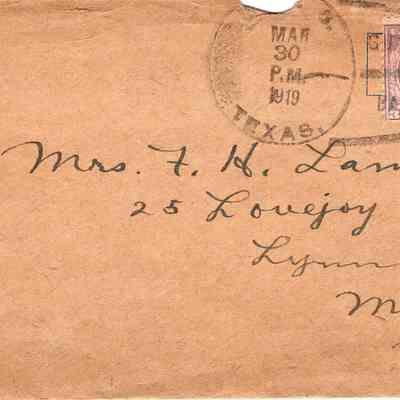 MAR
30
P.M.
1919
TEXAS.
Mrs. F. H. Lam
25 Lovejoy
Lynn
M